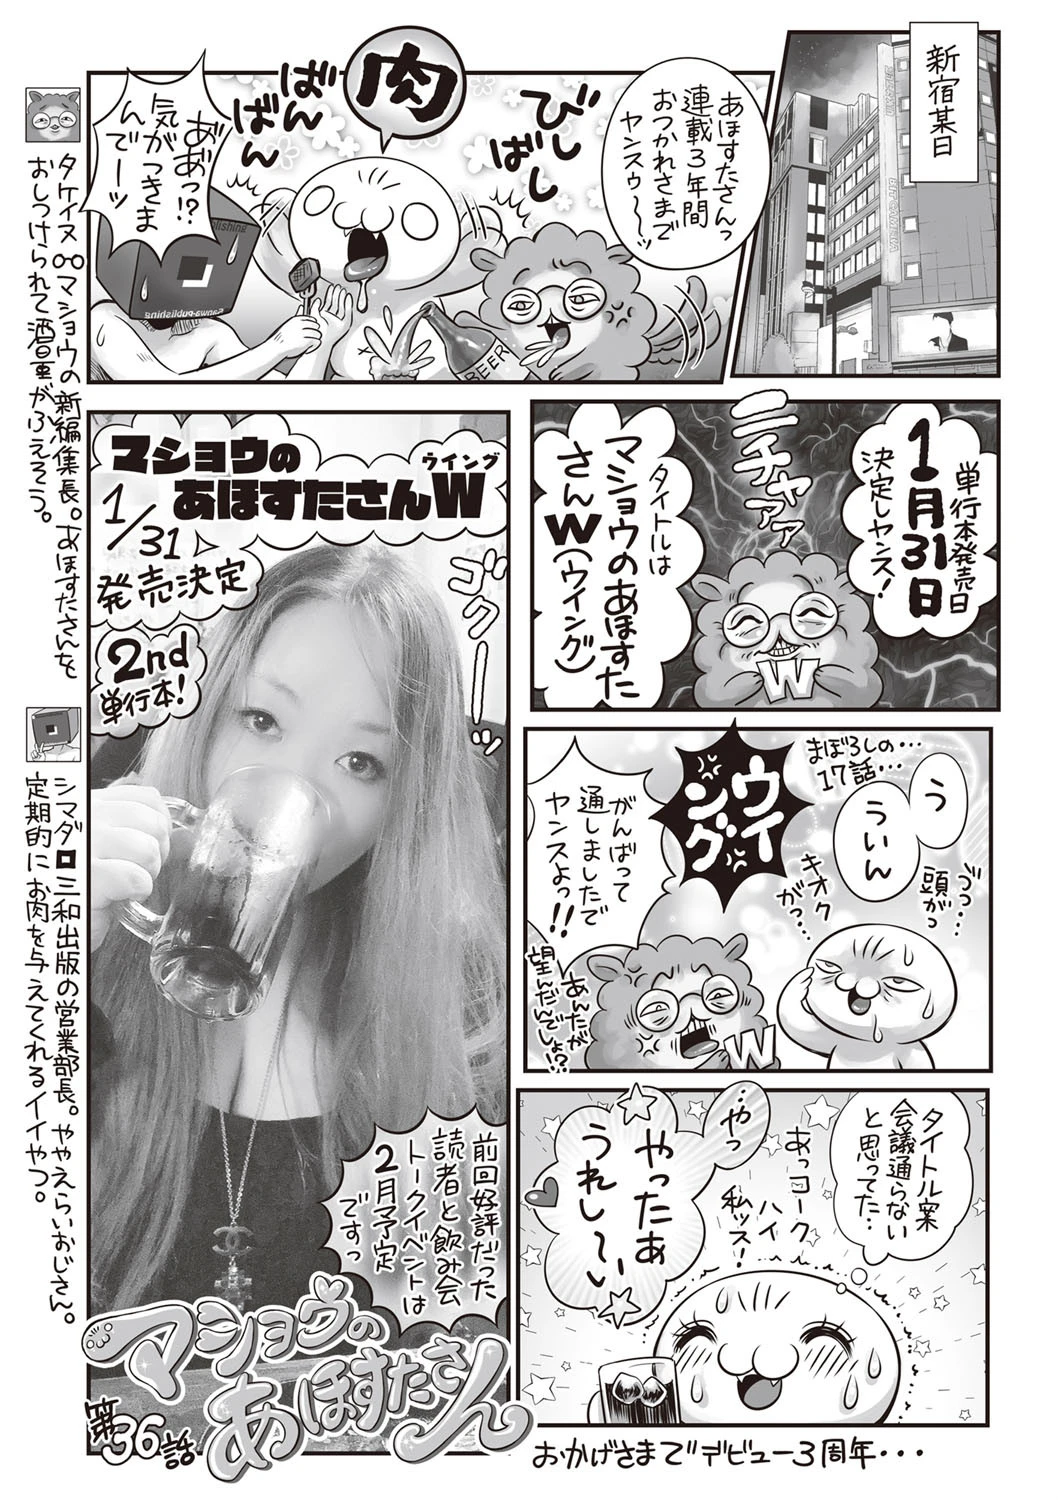 新宿某日
あほすたさんっ
連載3年間
おつかれさまで
ヤンスゥ〜〜ッ
びし
ばし
肉
ばん
ばん
あ゛あ゛っ!?
気がつきま
んでーッ
BEER
単行本発売日
1月31日
決定しヤンス!
ニチャアァ
タイトルは
マショウのあほすた
さんW(ウイング)
W
まぼろしの…
17話…
う
ういん
づっ…
頭がっ
キオク
がっ…
ウイ
ング
がんばって
通しましたで
ヤンスよっ!!
あんたが
望んだんでしょ!?
W
タイトル案
会議通らない
と思ってた…
あっコーク
ハイ
私ッス!
…やっ
やったぁ
うれし〜い
おかげさまでデビュー3周年・・・
マショウの
あほすたさんW
ウイング
1/31
発売決定
2nd
単行本!
ゴクーーッ
前回好評だった
読者と飲み会
トークイベントは
2月予定
ですっ
マショウの
あほすたさん
第36話
タケイヌ マショウの新編集長。あほすたさんを
おしつけられて酒量がふえそう。
シマダ 三和出版の営業部長。ややえらいおじさん。
定期的にお肉を与えてくれるイイやつ。